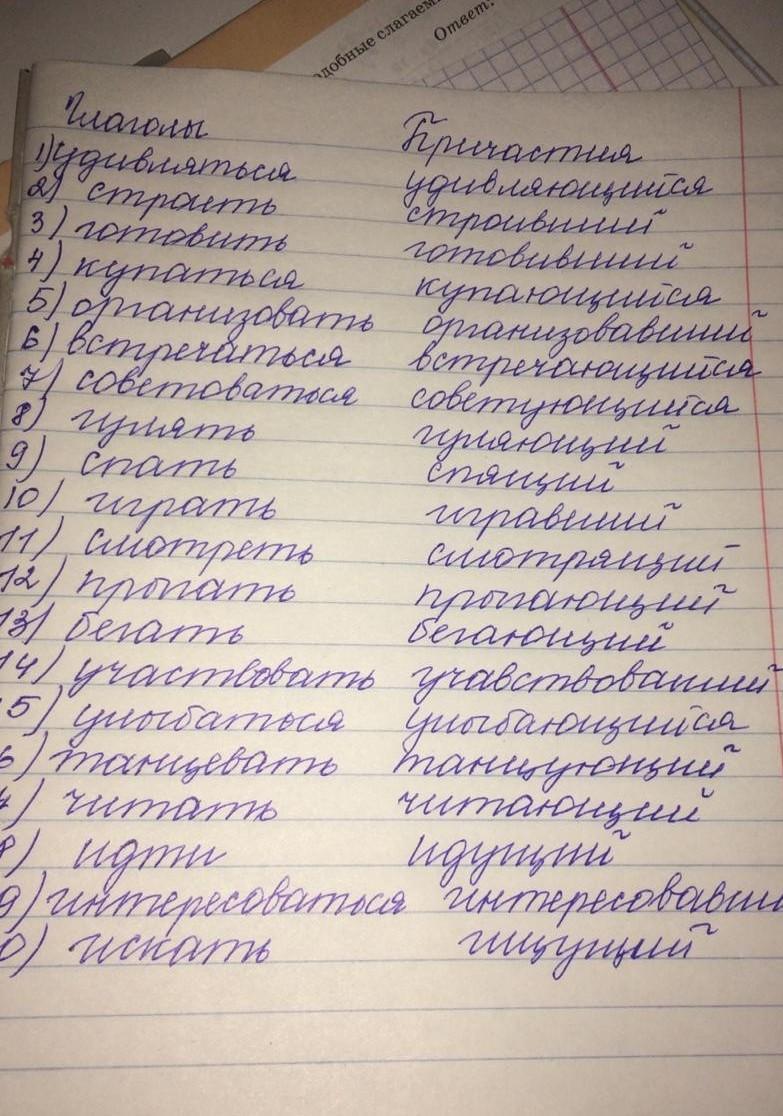 одобные слагаем
Ответ:
Глаголы Причастия
1) удивляться удивляющийся
2) строить строивший
3) готовить готовивший
4) купаться купающийся
5) организовать организовавший
6) встречаться встречающийся
7) советоваться советующийся
8) гулять гуляющий
9) спать спящий
10) играть игравший
11) смотреть смотрящий
12) прыгать прыгающий
13) бегать бегающий
14) участвовать учавствовавший
5) улыбаться улыбающийся
6) танцевать танцующий
7) читать читающий
8) идти идущий
9) интересоваться интересовавши
0) искать ищущий